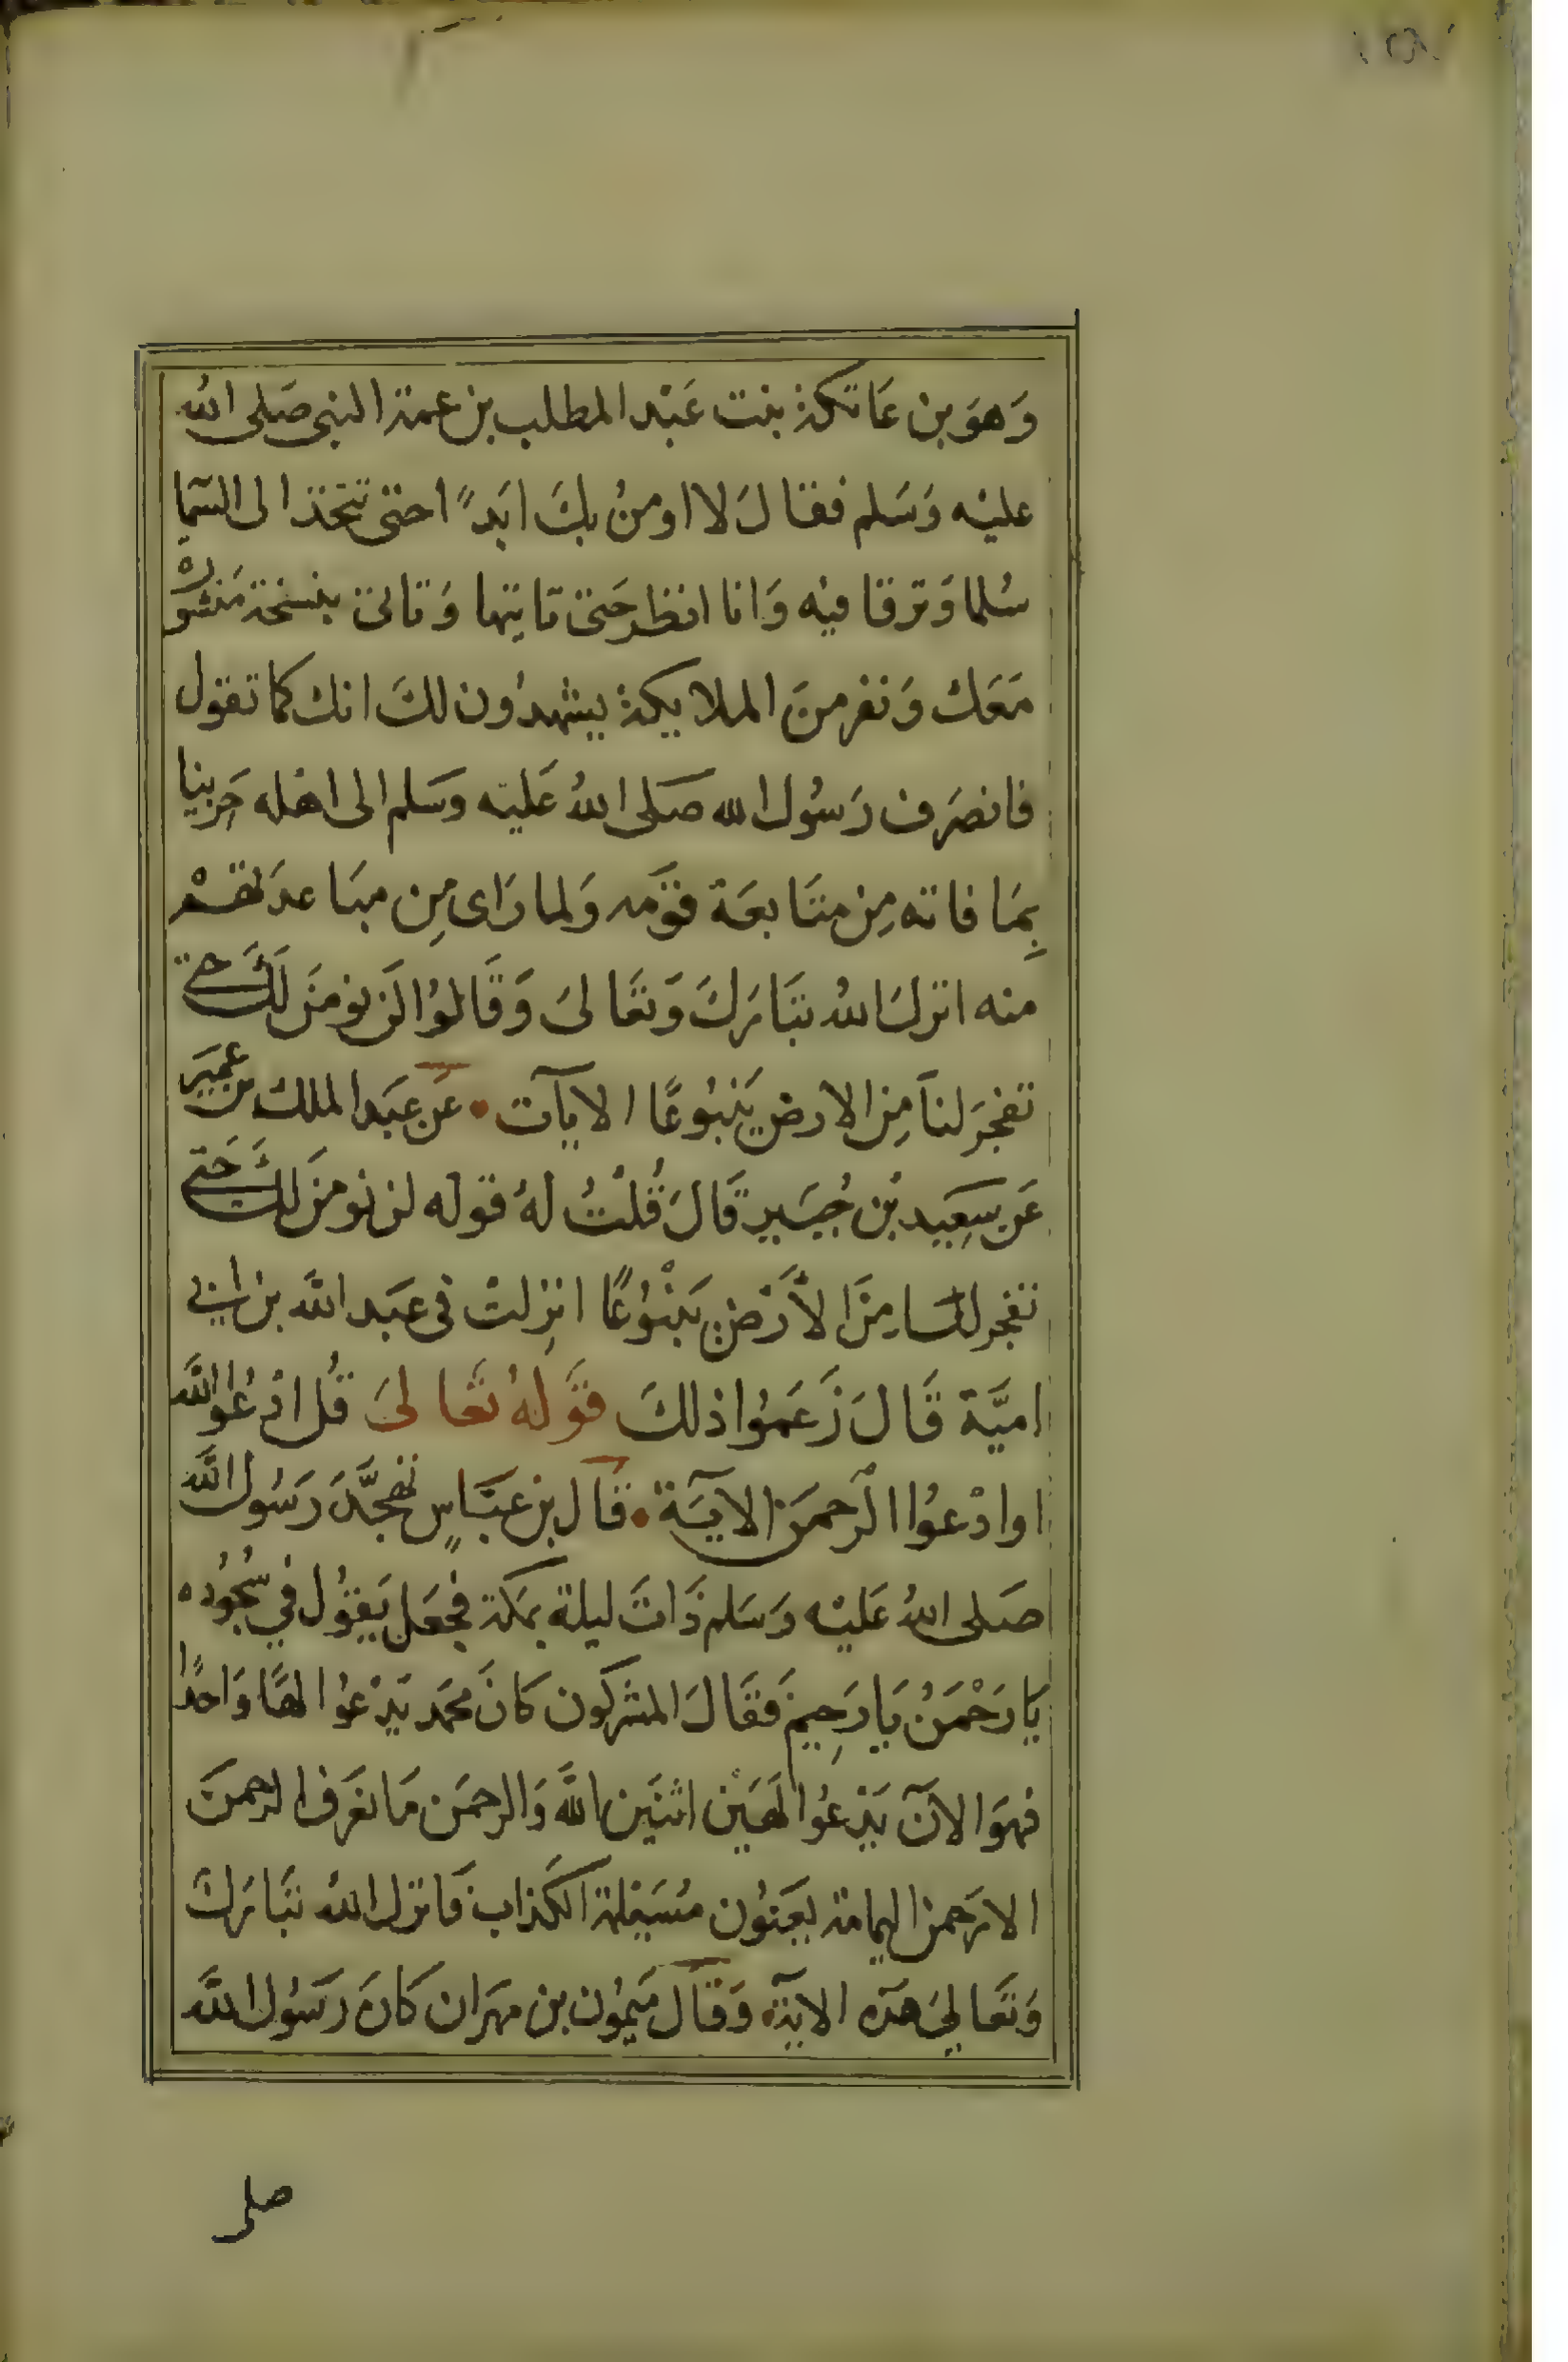 وَهوَ بن عَاتكة بنت عَبْد المطلب بن عمة النبى صَلى الله
عليْه وَسَلم فقالَ لا اومنُ بكَ ابَدًا حتى تتخذ الى السَّما
سُلما وَترقا فيْه وَانا انظر حَتى تاتيها وَتاتى بنسخة مَنشوره
مَعَك وَنفر منَ الملايكة يشهدُون لكَ انك كما تقول
فانصَرَف رَسُول الله صَلى اللهُ عَليْه وَسَلم الى اهْله حَزينا
بِمَا فاته مِن متَابعَة قوْمه وَلما رَاى مِن مبَاعدَتهْم
منه انزلَ اللهُ تبَارَكَ وَتعَالىَ وَقَالوُا لَن نومنَ لَكَ حَتى
تفجرَ لناَ مِن الارض يَنبُوعًا الايآت • عَن عبَد الملك بن عميَر
عَن سَعِيد بْن جُبَير قَالَ قُلتُ لهُ قوله لن نومنَ لكَ حَتى
تفجر لنا مِنَ الأَرْض يَنْبُوُعًا انزِلتْ فى عبَد اللَّه بن ابى
اميَّة قَالَ زَعَمُوا ذلكَ قوَلهُ تعَالىَ قُل ادْعُوا اللَّه
او ادْعُوا الرَّحمَن الآيَة • قال بن عبَّاسٍ تهجَّدَ رَسُول اللَّه
صَلى اللهُ عَليْه وَسَلم ذَاتَ ليلة بمَكة فجعَل يَقوُل في سُجُوُده
يَا رَحْمَنُ يَا رَحِيمَ فَقَالَ المشركون كانَ محمَد يَدْعوُا الهًا وَاحدًا
فهوَ الآن يَدْعُوا الهَيْن اثنَين اللَّه وَالرحمَن مَا نعَرَف الرحمنَ
الا رَحمن اليمامة يعَنوُن مُسَيْلمة الكذاب فانزل اللهُ تبَارَكَ
وَتعَالىَ هذه الايَة • وَقال مَيمُون بن مهرَان كانَ رَسُول اللَّه
صلى